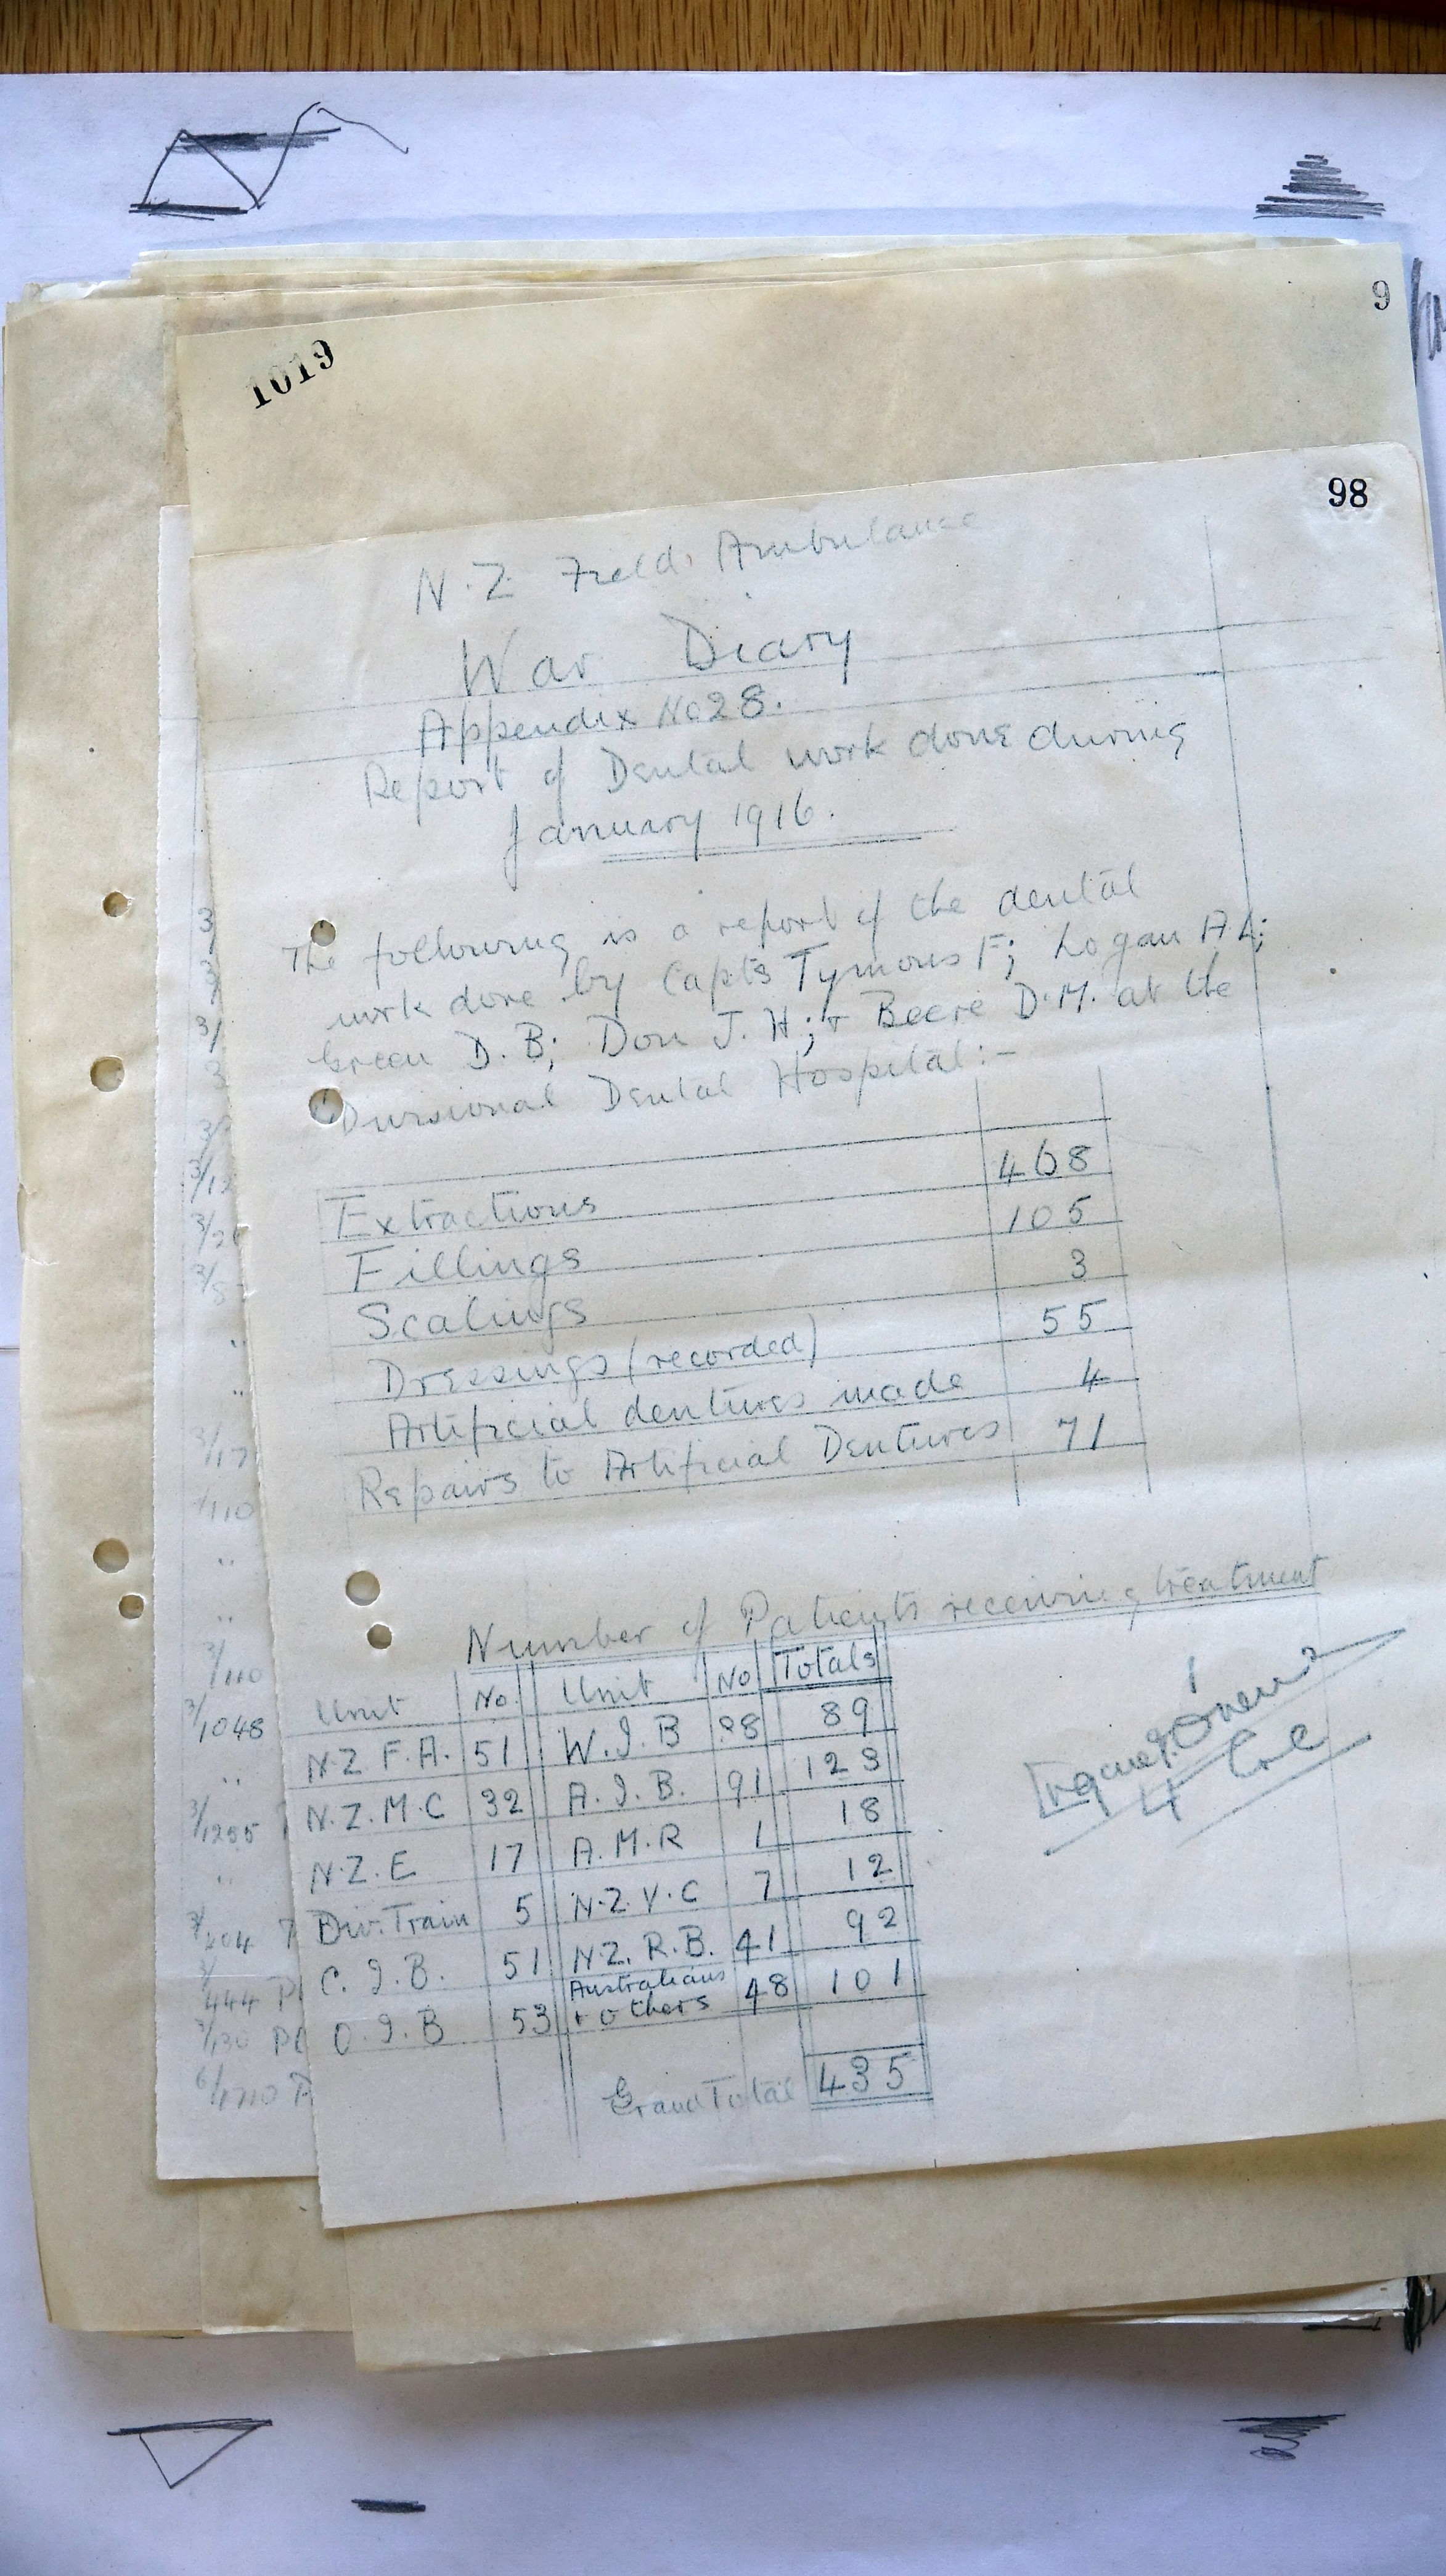 9
1019
98
N.Z Field Ambulance
War Diary
Appendix No 28.
Report of Dental work done during
January 1916.
The following is a report of the dental
work done by Capts Tymons F; Logan A.L;
Green D.B; Don J.H; + Beere D.M. at the
Divisional Dental Hospital:-
Extractions 468
Fillings 105
Scalings 3
Dressings (recorded) 55
Artificial dentures made 4
Repairs to Artificial Dentures 71
Number of Patients receiving treatment
Unit No. Unit No Totals
N.Z F.A. 51 W.I.B 38 89
N.Z.M.C 32 A.I.B. 91 123
N.Z.E 17 A.M.R 1 18
Div. Train 5 N.Z.V.C 7 12
C.I.B. 51 N.Z.R.B. 41 92
O.I.B 53 Australians + others 48 101
Grand Total 435
3/1048
3/1255